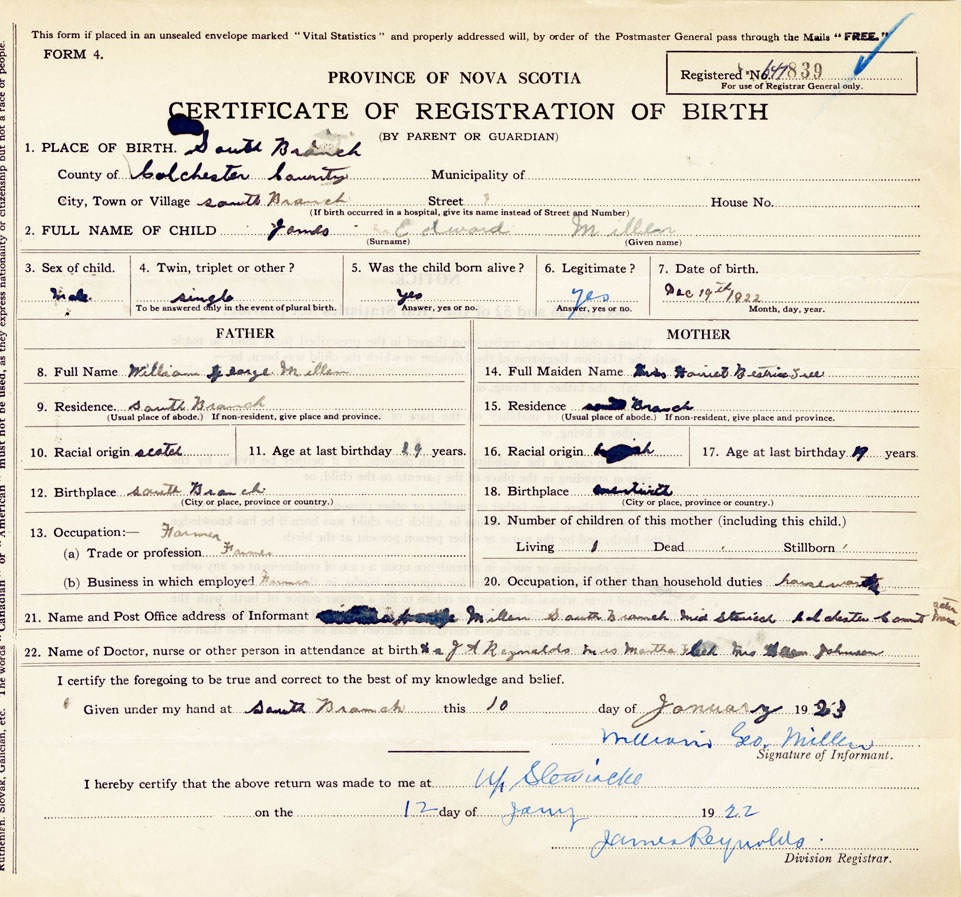 This form if placed in an unsealed envelope marked "Vital Statistics" and properly addressed will, by order of the Postmaster General pass through the Mails "FREE."
FORM 4.
Registered No. 839
For use of Registrar General only.
PROVINCE OF NOVA SCOTIA
CERTIFICATE OF REGISTRATION OF BIRTH
(BY PARENT OR GUARDIAN)
1. PLACE OF BIRTH. South Branch
County of Colchester County Municipality of
City, Town or Village South Branch Street House No.
(If birth occurred in a hospital, give its name instead of Street and Number)
2. FULL NAME OF CHILD James Edward Millen
(Surname) (Given name)
3. Sex of child. 4. Twin, triplet or other? 5. Was the child born alive? 6. Legitimate? 7. Date of birth.
Male single yes yes Dec 19th 1922
To be answered only in the event of plural birth. Answer, yes or no. Answer, yes or no. Month, day, year.
FATHER MOTHER
8. Full Name William George Millen 14. Full Maiden Name Miss Harriet Beatrice
9. Residence. South Branch 15. Residence South Branch
(Usual place of abode.) If non-resident, give place and province. (Usual place of abode.) If non-resident, give place and province.
10. Racial origin scotch 11. Age at last birthday 29 years. 16. Racial origin 17. Age at last birthday 19 years.
12. Birthplace South Branch 18. Birthplace
(City or place, province or country.) (City or place, province or country.)
13. Occupation:— Farmer 19. Number of children of this mother (including this child.)
(a) Trade or profession Farmer Living 1 Dead Stillborn
(b) Business in which employed Farmer 20. Occupation, if other than household duties
21. Name and Post Office address of Informant Millen South Branch Colchester
22. Name of Doctor, nurse or other person in attendance at birth J A Reynolds Mrs Martha Mrs Johnson
I certify the foregoing to be true and correct to the best of my knowledge and belief.
Given under my hand at South Branch this 10 day of January 1923
William Geo. Millen
Signature of Informant.
I hereby certify that the above return was made to me at Up Stewiacke
on the 12 day of Jany 1922
James Reynolds
Division Registrar.